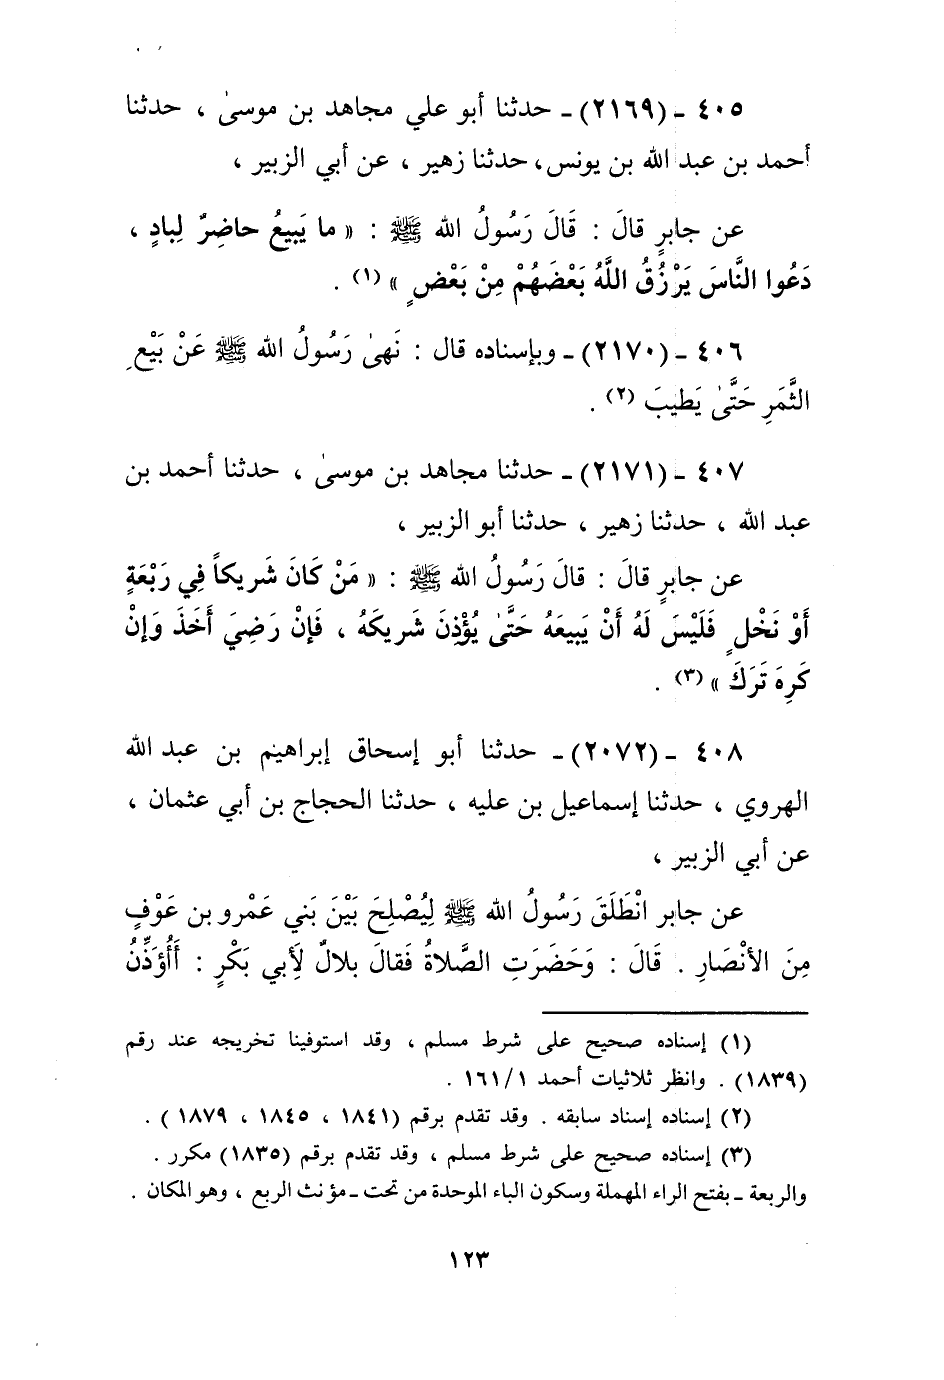 ٤٠٥ - (٢١٦٩) - حدثنا أبو علي مجاهد بن موسىٰ ، حدثنا
أحمد بن عبد الله بن يونس، حدثنا زهير ، عن أبي الزبير ،
عن جابرٍ قالَ : قَالَ رَسُولُ الله ﷺ : « ما يَبِيعُ حاضِرٌ لِبادٍ ،
دَعُوا النَّاسَ يَرْزُقُ اللَّهُ بَعْضَهُمْ مِنْ بَعْضٍ » (١) .
٤٠٦ - (٢١٧٠) - وبإسناده قال : نَهىٰ رَسُولُ الله ﷺ عَنْ بَيْعِ
الثَّمَرِ حَتَّىٰ يَطيبَ (٢) .
٤٠٧ - (٢١٧١) - حدثنا مجاهد بن موسىٰ ، حدثنا أحمد بن
عبد الله ، حدثنا زهير ، حدثنا أبو الزبير ،
عن جابرٍ قالَ : قالَ رَسُولُ الله ﷺ : « مَنْ كَانَ شَريكاً فِي رَبْعَةٍ
أَوْ نَخْلٍ فَلَيْسَ لَهُ أَنْ يَبيعَهُ حَتَّىٰ يُؤْذِنَ شَريكَهُ ، فَإنْ رَضِيَ أَخَذَ وَإنْ
كَرِهَ تَرَكَ » (٣) .
٤٠٨ - (٢٠٧٢) - حدثنا أبو إسحاق إبراهيم بن عبد الله
الهروي ، حدثنا إسماعيل بن عليه ، حدثنا الحجاج بن أبي عثمان ،
عن أبي الزبير ،
عن جابر انْطَلَقَ رَسُولُ الله ﷺ لِيُصْلِحَ بَيْنَ بَني عَمْرو بن عَوْفٍ
مِنَ الأنْصَارِ . قَالَ : وَحَضَرَتِ الصَّلاةُ فَقالَ بلالٌ لأبي بَكْرٍ : أَأُؤَذِّنُ
(١) إسناده صحيح على شرط مسلم ، وقد استوفينا تخريجه عند رقم
(١٨٣٩) . وانظر ثلاثيات أحمد ١/ ١٦١ .
(٢) إسناده إسناد سابقه . وقد تقدم برقم (١٨٤١ ، ١٨٤٥ ، ١٨٧٩ ) .
(٣) إسناده صحيح على شرط مسلم ، وقد تقدم برقم (١٨٣٥) مكرر .
والربعة - بفتح الراء المهملة وسكون الباء الموحدة من تحت - مؤنث الربع ، وهو المكان .
١٢٣